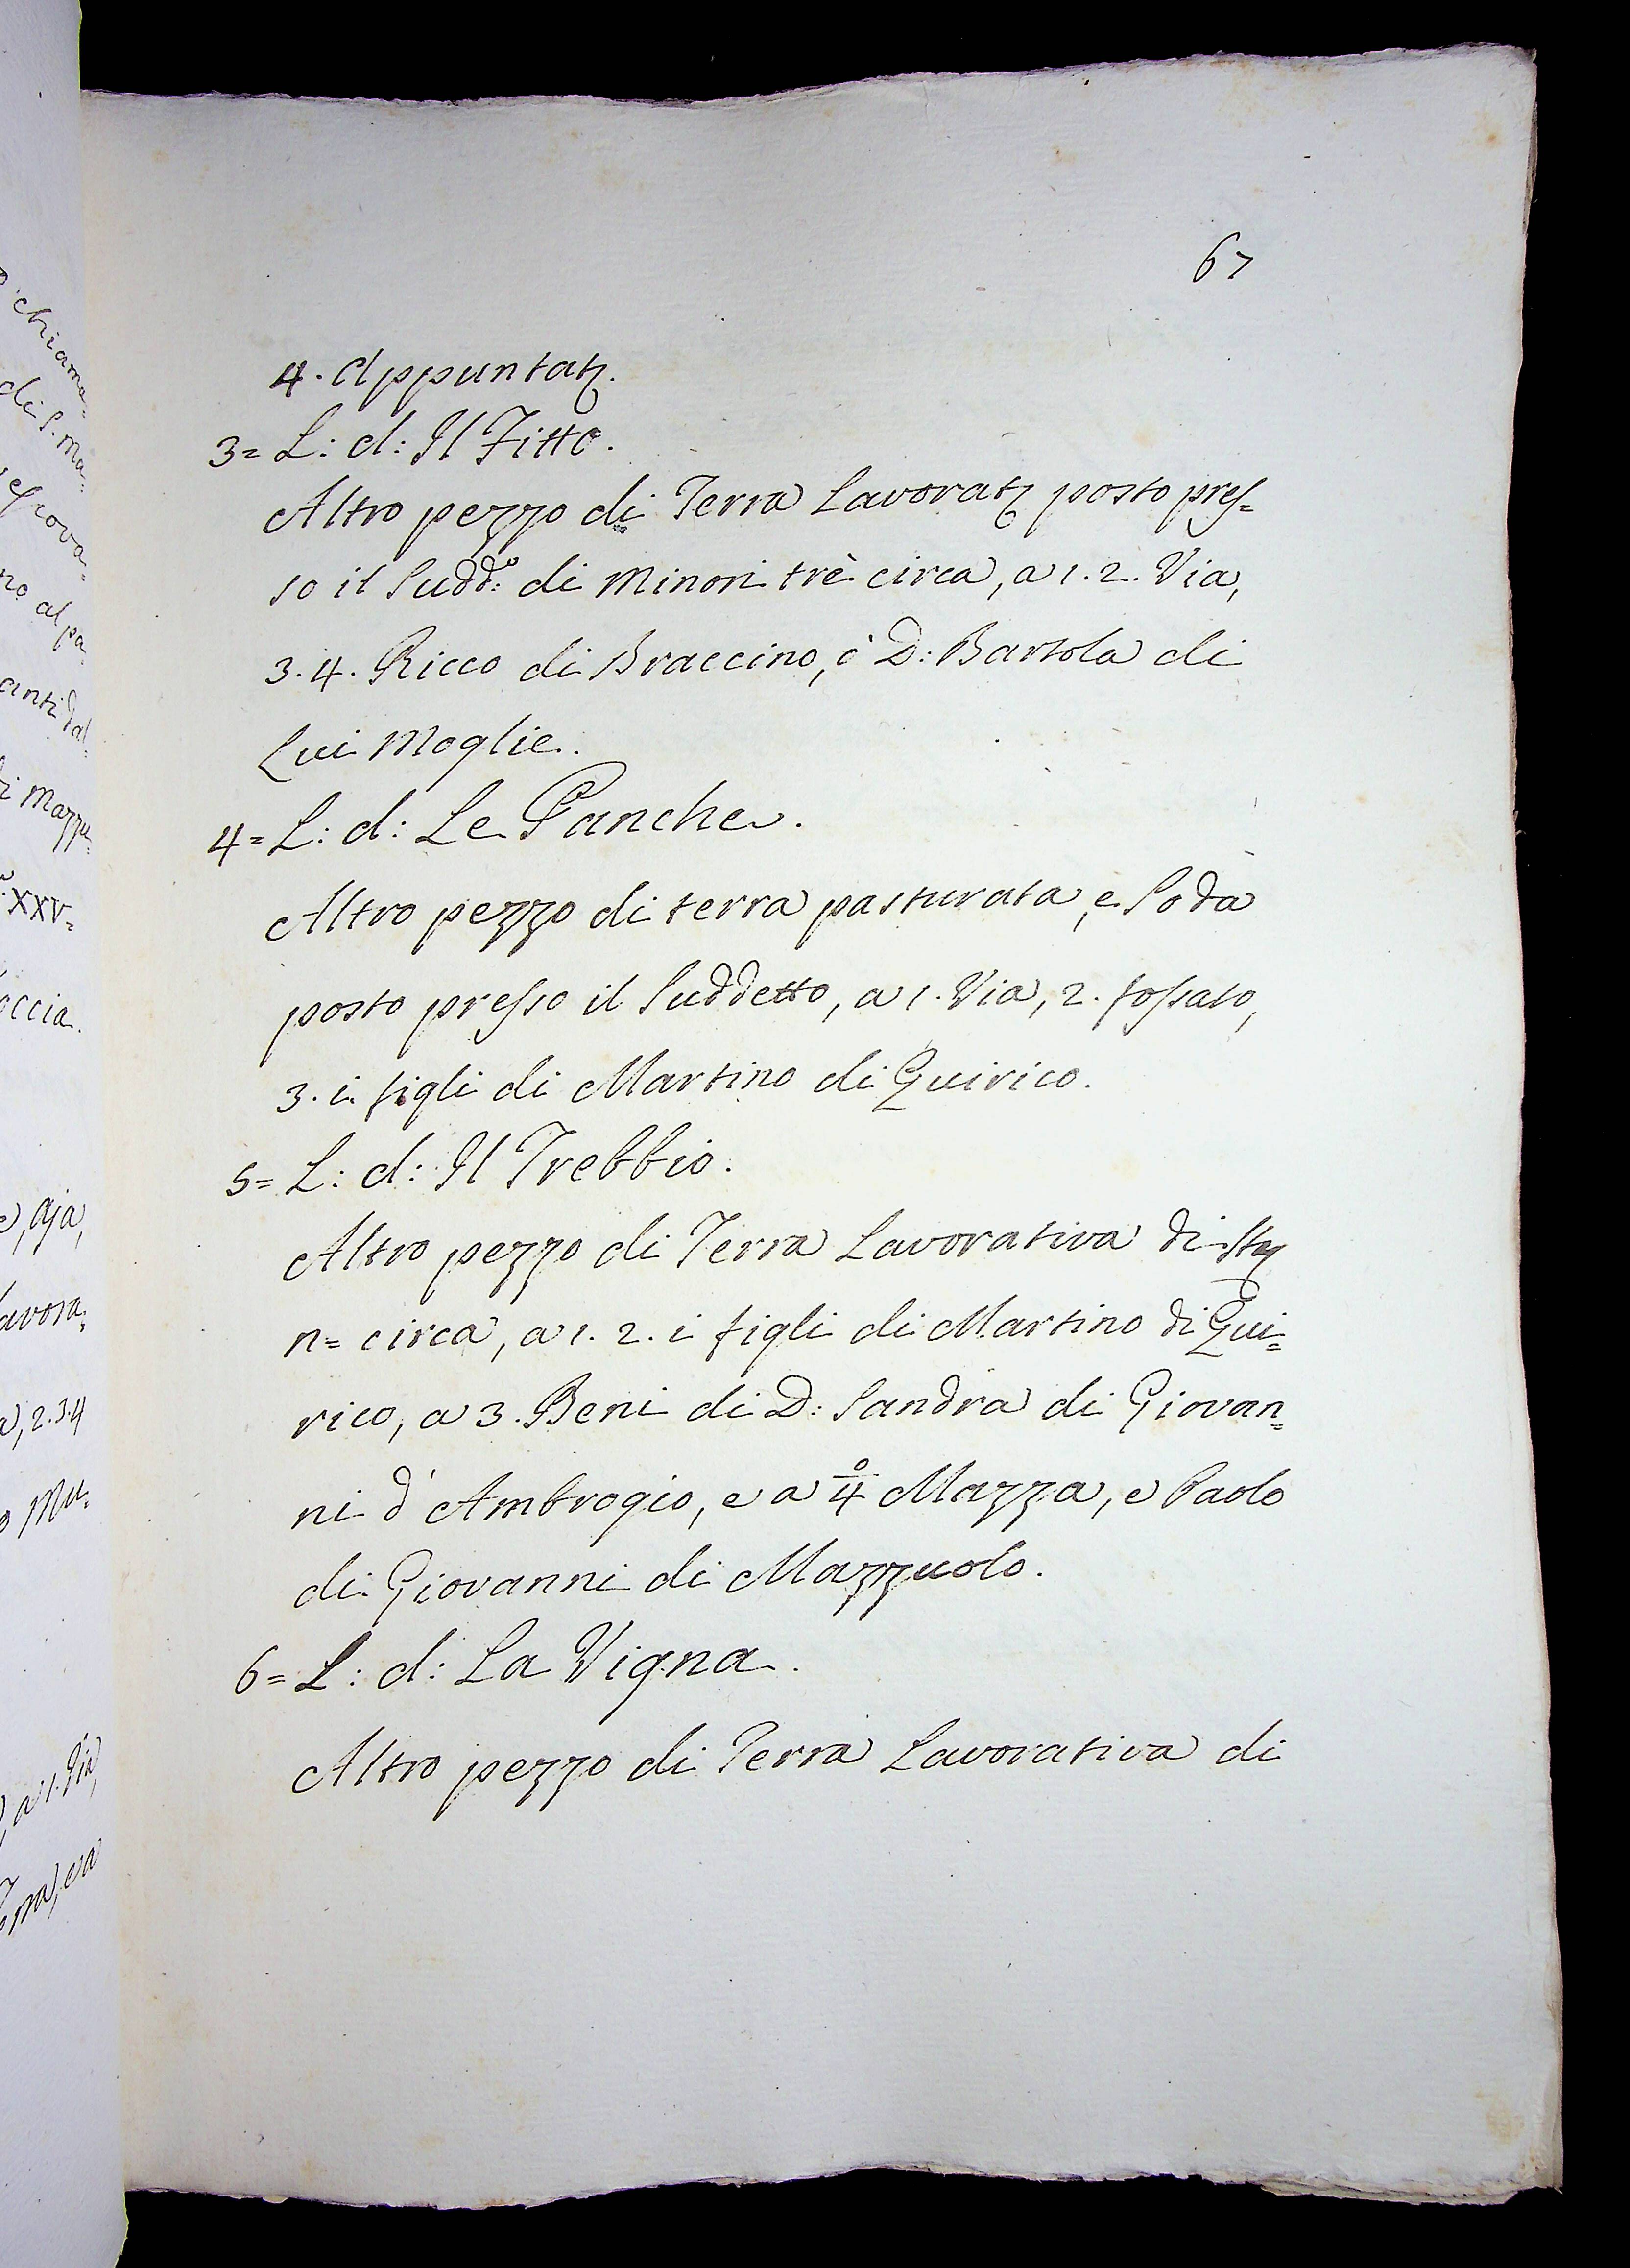 67
4. Appuntat.
3= L: d: Il Fitto.
Altro pezzo di Terra Lavorat. posto pres=
so il Sudd.º di Minori trè circa, a 1. 2. Via,
3. 4. Ricco di Braccino, ò D: Bartola di
Lui Moglie.
4= L: d: Le Panche.
Altro pezzo di terra pasturata, e Soda
posto presso il Suddetto, a 1. Via, 2. fossato,
3. i figli di Martino di Quirico.
5= L: d: Il Trebbio.
Altro pezzo di Terra Lavorativa di
n= circa, a 1. 2. i figli di Martino di Qui=
rico, a 3. Beni di D: Sandra di Giovan=
ni d'Ambrogio, e a 4º Mazza, e Paolo
di Giovanni di Mazzuolo.
6= L: d: La Vigna.
Altro pezzo di Terra Lavorativa di
chiama=
di S. Ma=
no al pa=
XXV=
occia.
aja,
avora=
2. 3. 4
Mu=
a 1. Via,